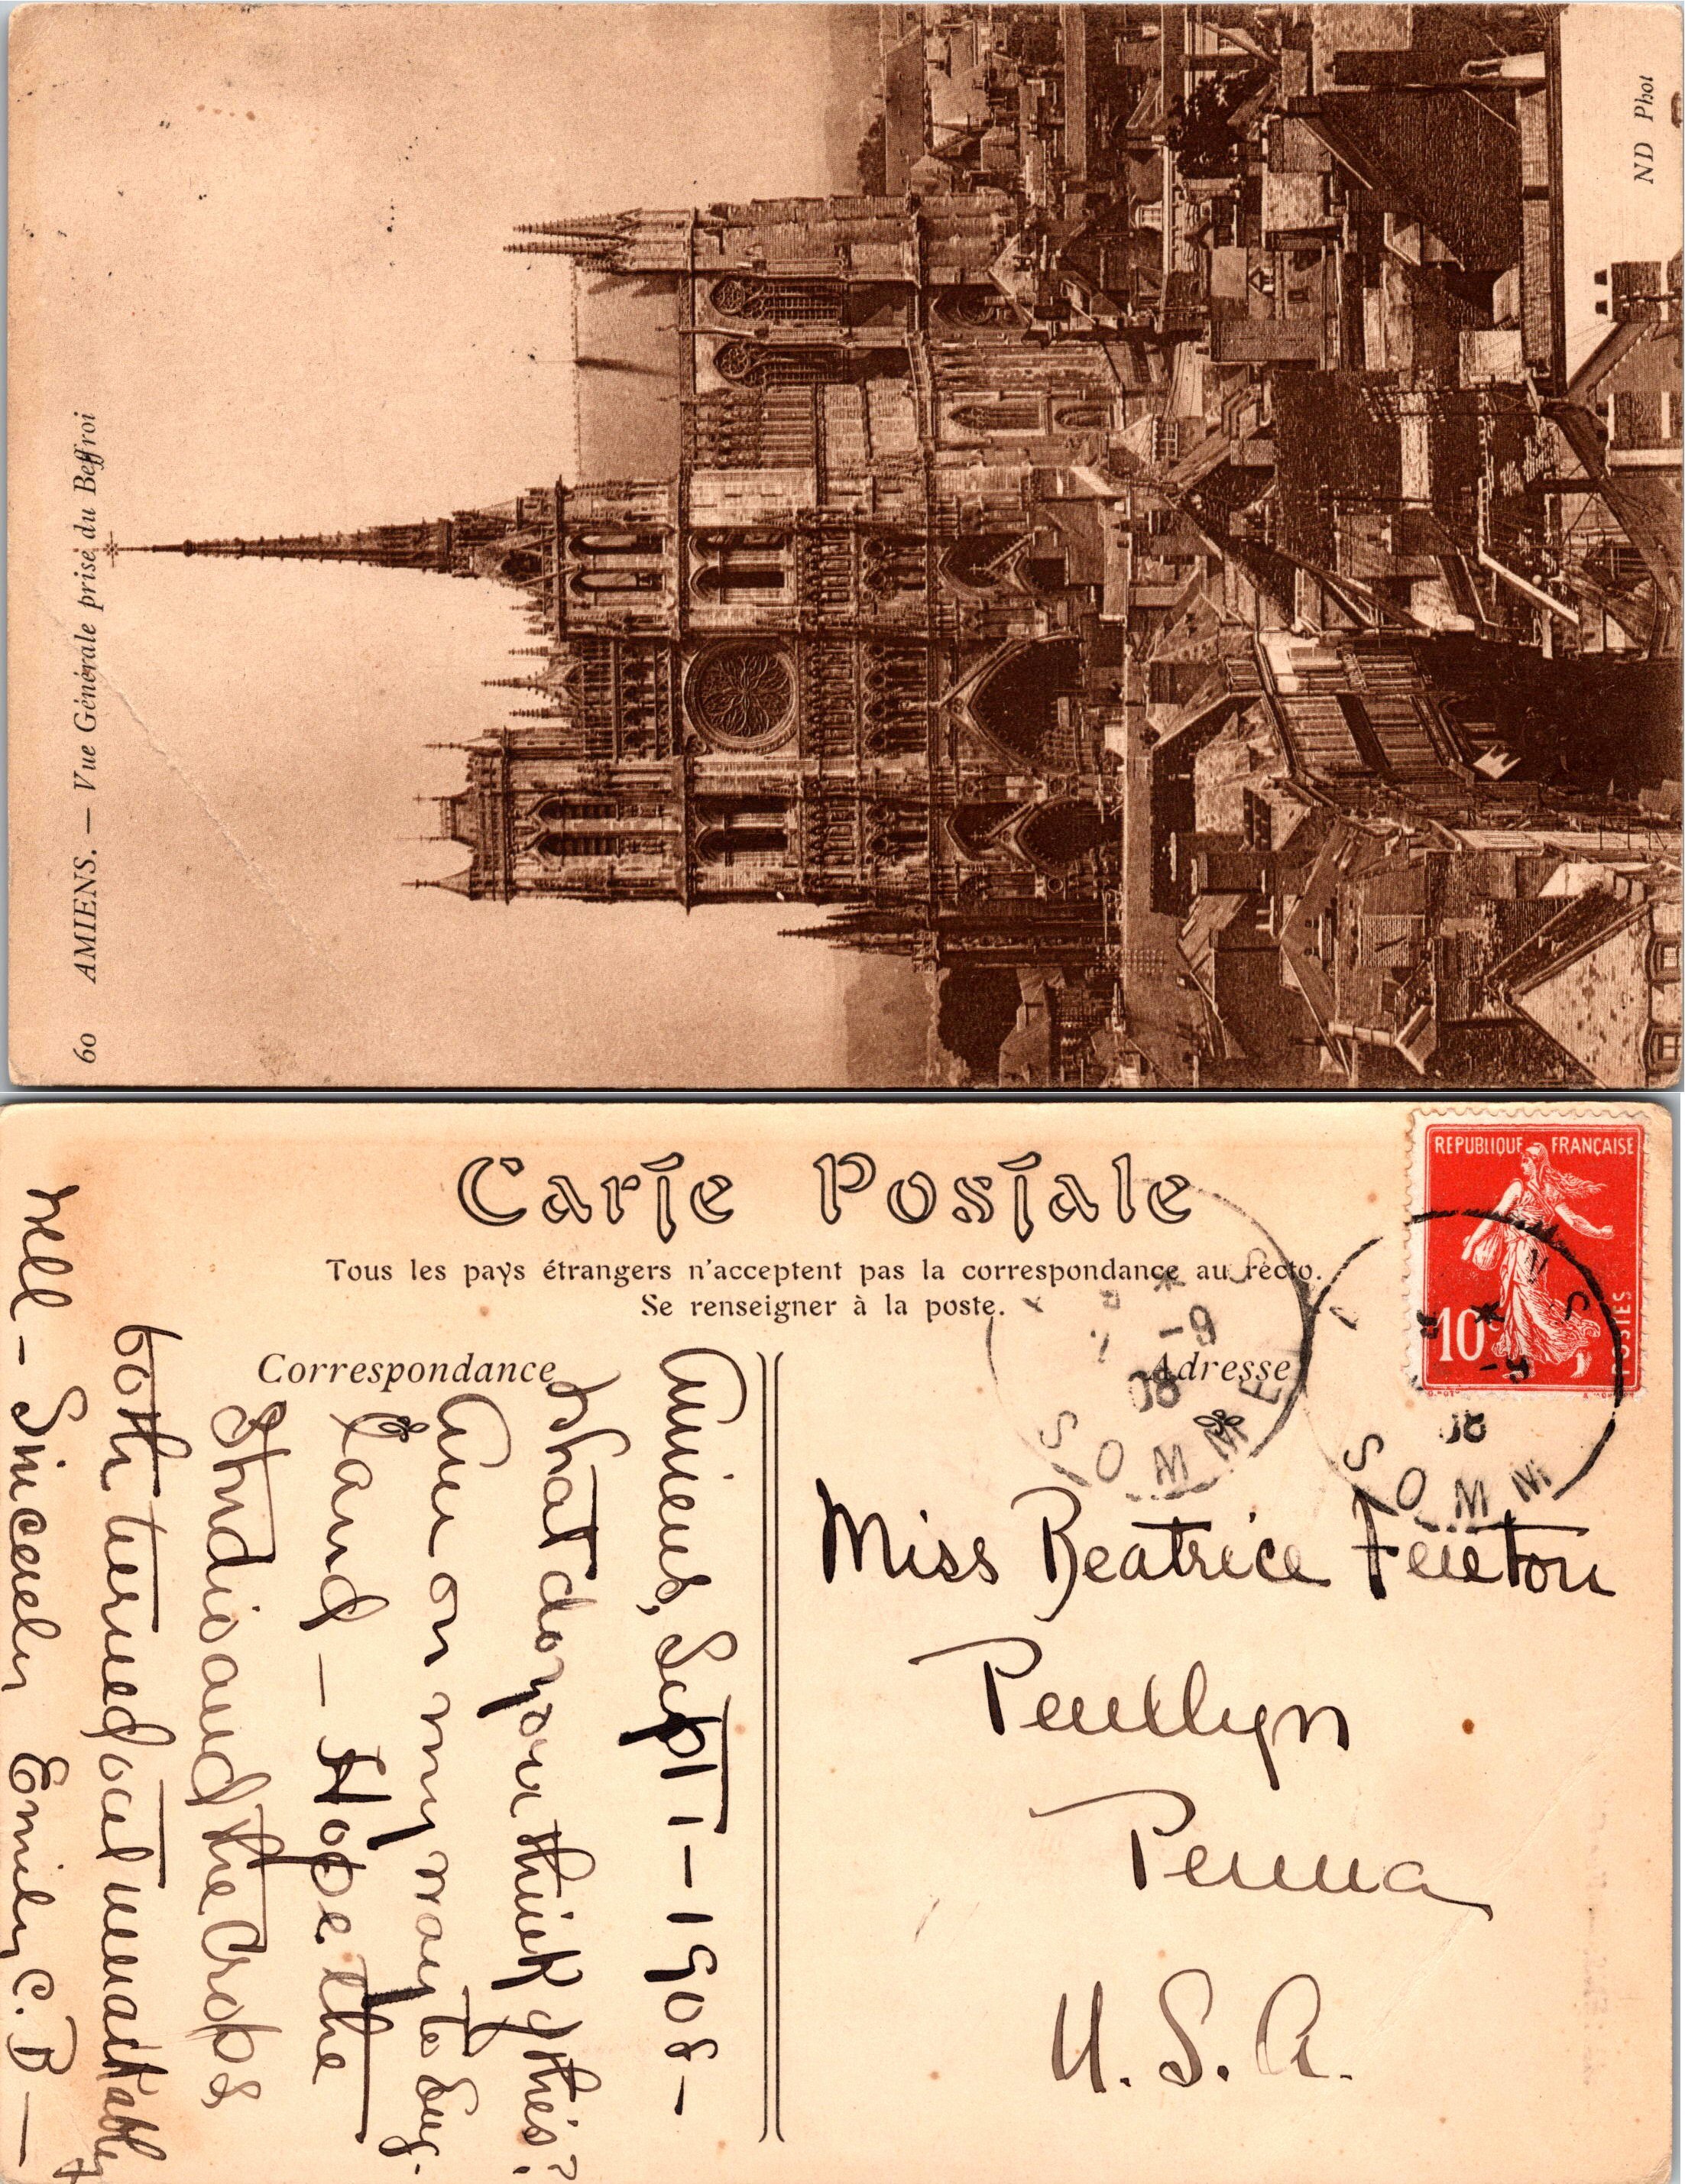 60 AMIENS. — Vue Générale prise du Beffroi
ND Phot
Carte Postale
Tous les pays étrangers n'acceptent pas la correspondance au recto.
Se renseigner à la poste.
Correspondance
Adresse
REPUBLIQUE FRANÇAISE
10c
POSTES
SOMME
-9
08
SOMM
08
Amiens, Sept 1 - 1908 -
What do you think of this?
Am on my way to Eng-
land - Hope the
Studio and the Crops
both turned out remarkably
well - Sincerely Emily C. B -
Miss Beatrice Fenton
Penllyn
Penna
U.S.A.